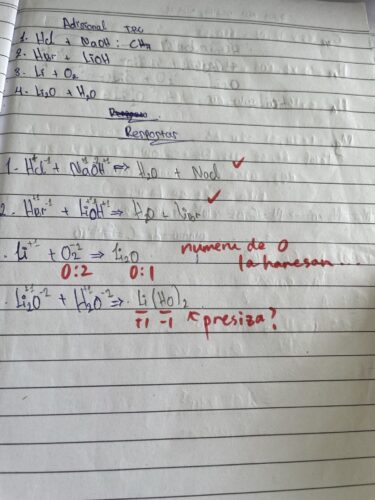 Adisional TPC
1. Hcl + NaOH : CH₄
2. HBr + LiOH
3. Li + O₂
4. Li₂O + H₂O
Respostas
1. H⁺¹cl⁻¹ + Na⁺¹OH⁻¹ ⇔ H₂O + Nacl ✓
2. H⁺¹Br⁻¹ + Li⁺¹OH⁻¹ ⇒ H₂O + LiBr ✓
. Li⁺¹ + O₂⁻² ⇒ Li₂O numeru de O
O:2 O:1 la hanesan...
. Li₂⁺¹O⁻² + H₂⁺¹O⁻² ⇒ Li(HO)₂
+1 -1 ↖ presiza?